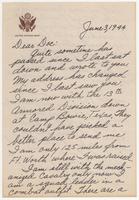 June 3, 1944
Dear Doc:
Quite sometime has
passed since I last sat
down and wrote to you.
My address has changed
since I last saw you.
I am now with the 13th
Armored Division down
at Camp Bowie, Texas. They
couldn't have picked a
better place to send me
I am only 125 miles from
Ft Worth where I was raised
I am still with the mech-
anized Cavalry only now I
am a squad leader in a
combat outfit. There are a